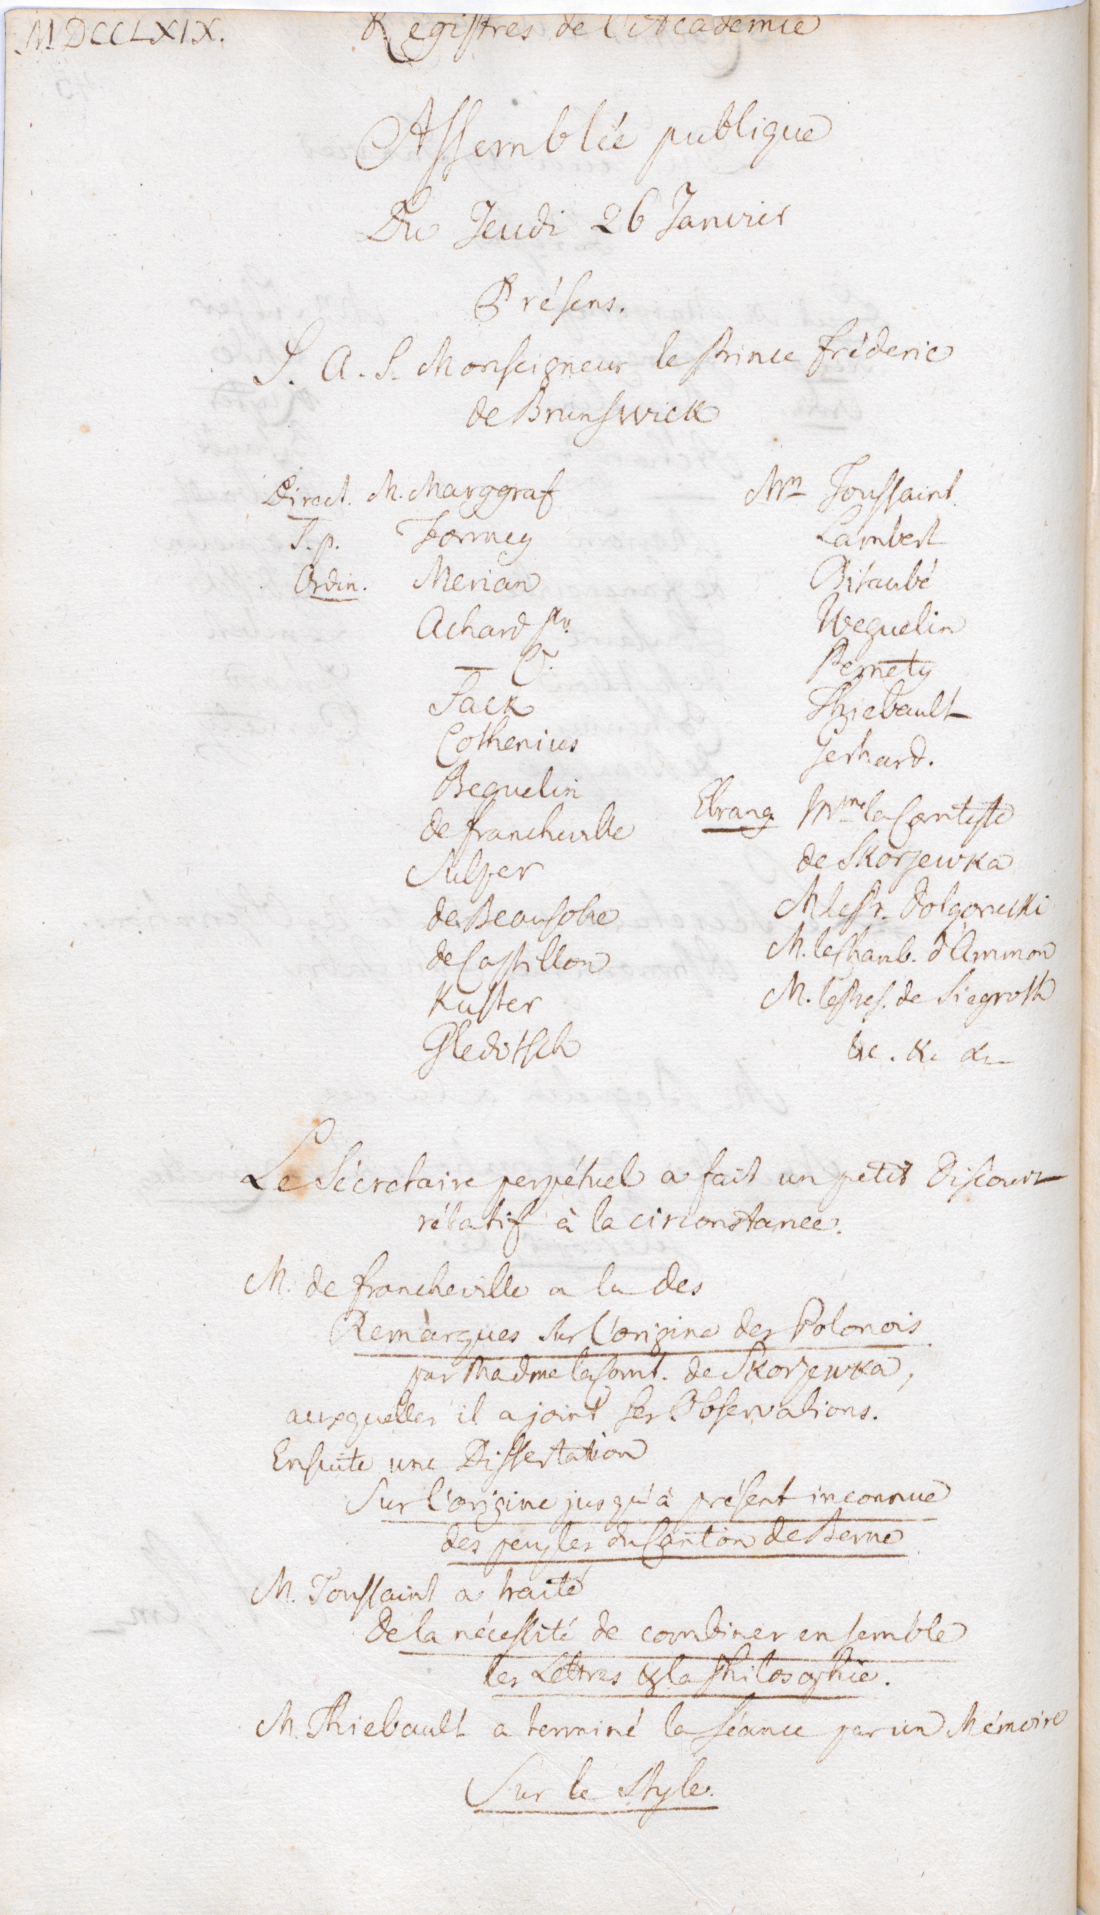 MDCCLXIX.
Registres de l'Academie
Assemblée publique
Du Jeudi 26 Janvier
Présens.
S. A. S. Monseigneur le Prince fréderic
de Brunswick
Direct. M. Marggraf
S. p. Formey
Ordin. Merian
Achard
Sack
Cothenius
Beguelin
de francheville
Sulzer
de Beausobre
de Castillon
Kuster
Gleditsch
Mrs Toussaint.
Lambert
Bitaubé
Weguelin
Pernety
Thiebault
Gerhard.
Etrang. Mme la Comtesse
de Skorzewka
M le Pr. Dolgorucki
M. le Chamb. d'Ammon
M. le Pres. de Siegroth
&c. &c. &c.
Le Sécretaire perpétuel a fait un petit Discours
rélatif à la circonstance.
M. de francheville a lu des
Remarques sur l'origine des Polonois
par Madme la Comt. de Skorzewka,
auxquelles il a joint ses Observations.
Ensuite une Dissertation
Sur l'origine jusqu'à présent inconnue
des peuples du Canton de Berne
M. Toussaint a traité
De la nécessité de combiner ensemble
les Lettres & la Philosophie.
M. Thiebault a terminé la Séance par un Mémoire
Sur le Style.